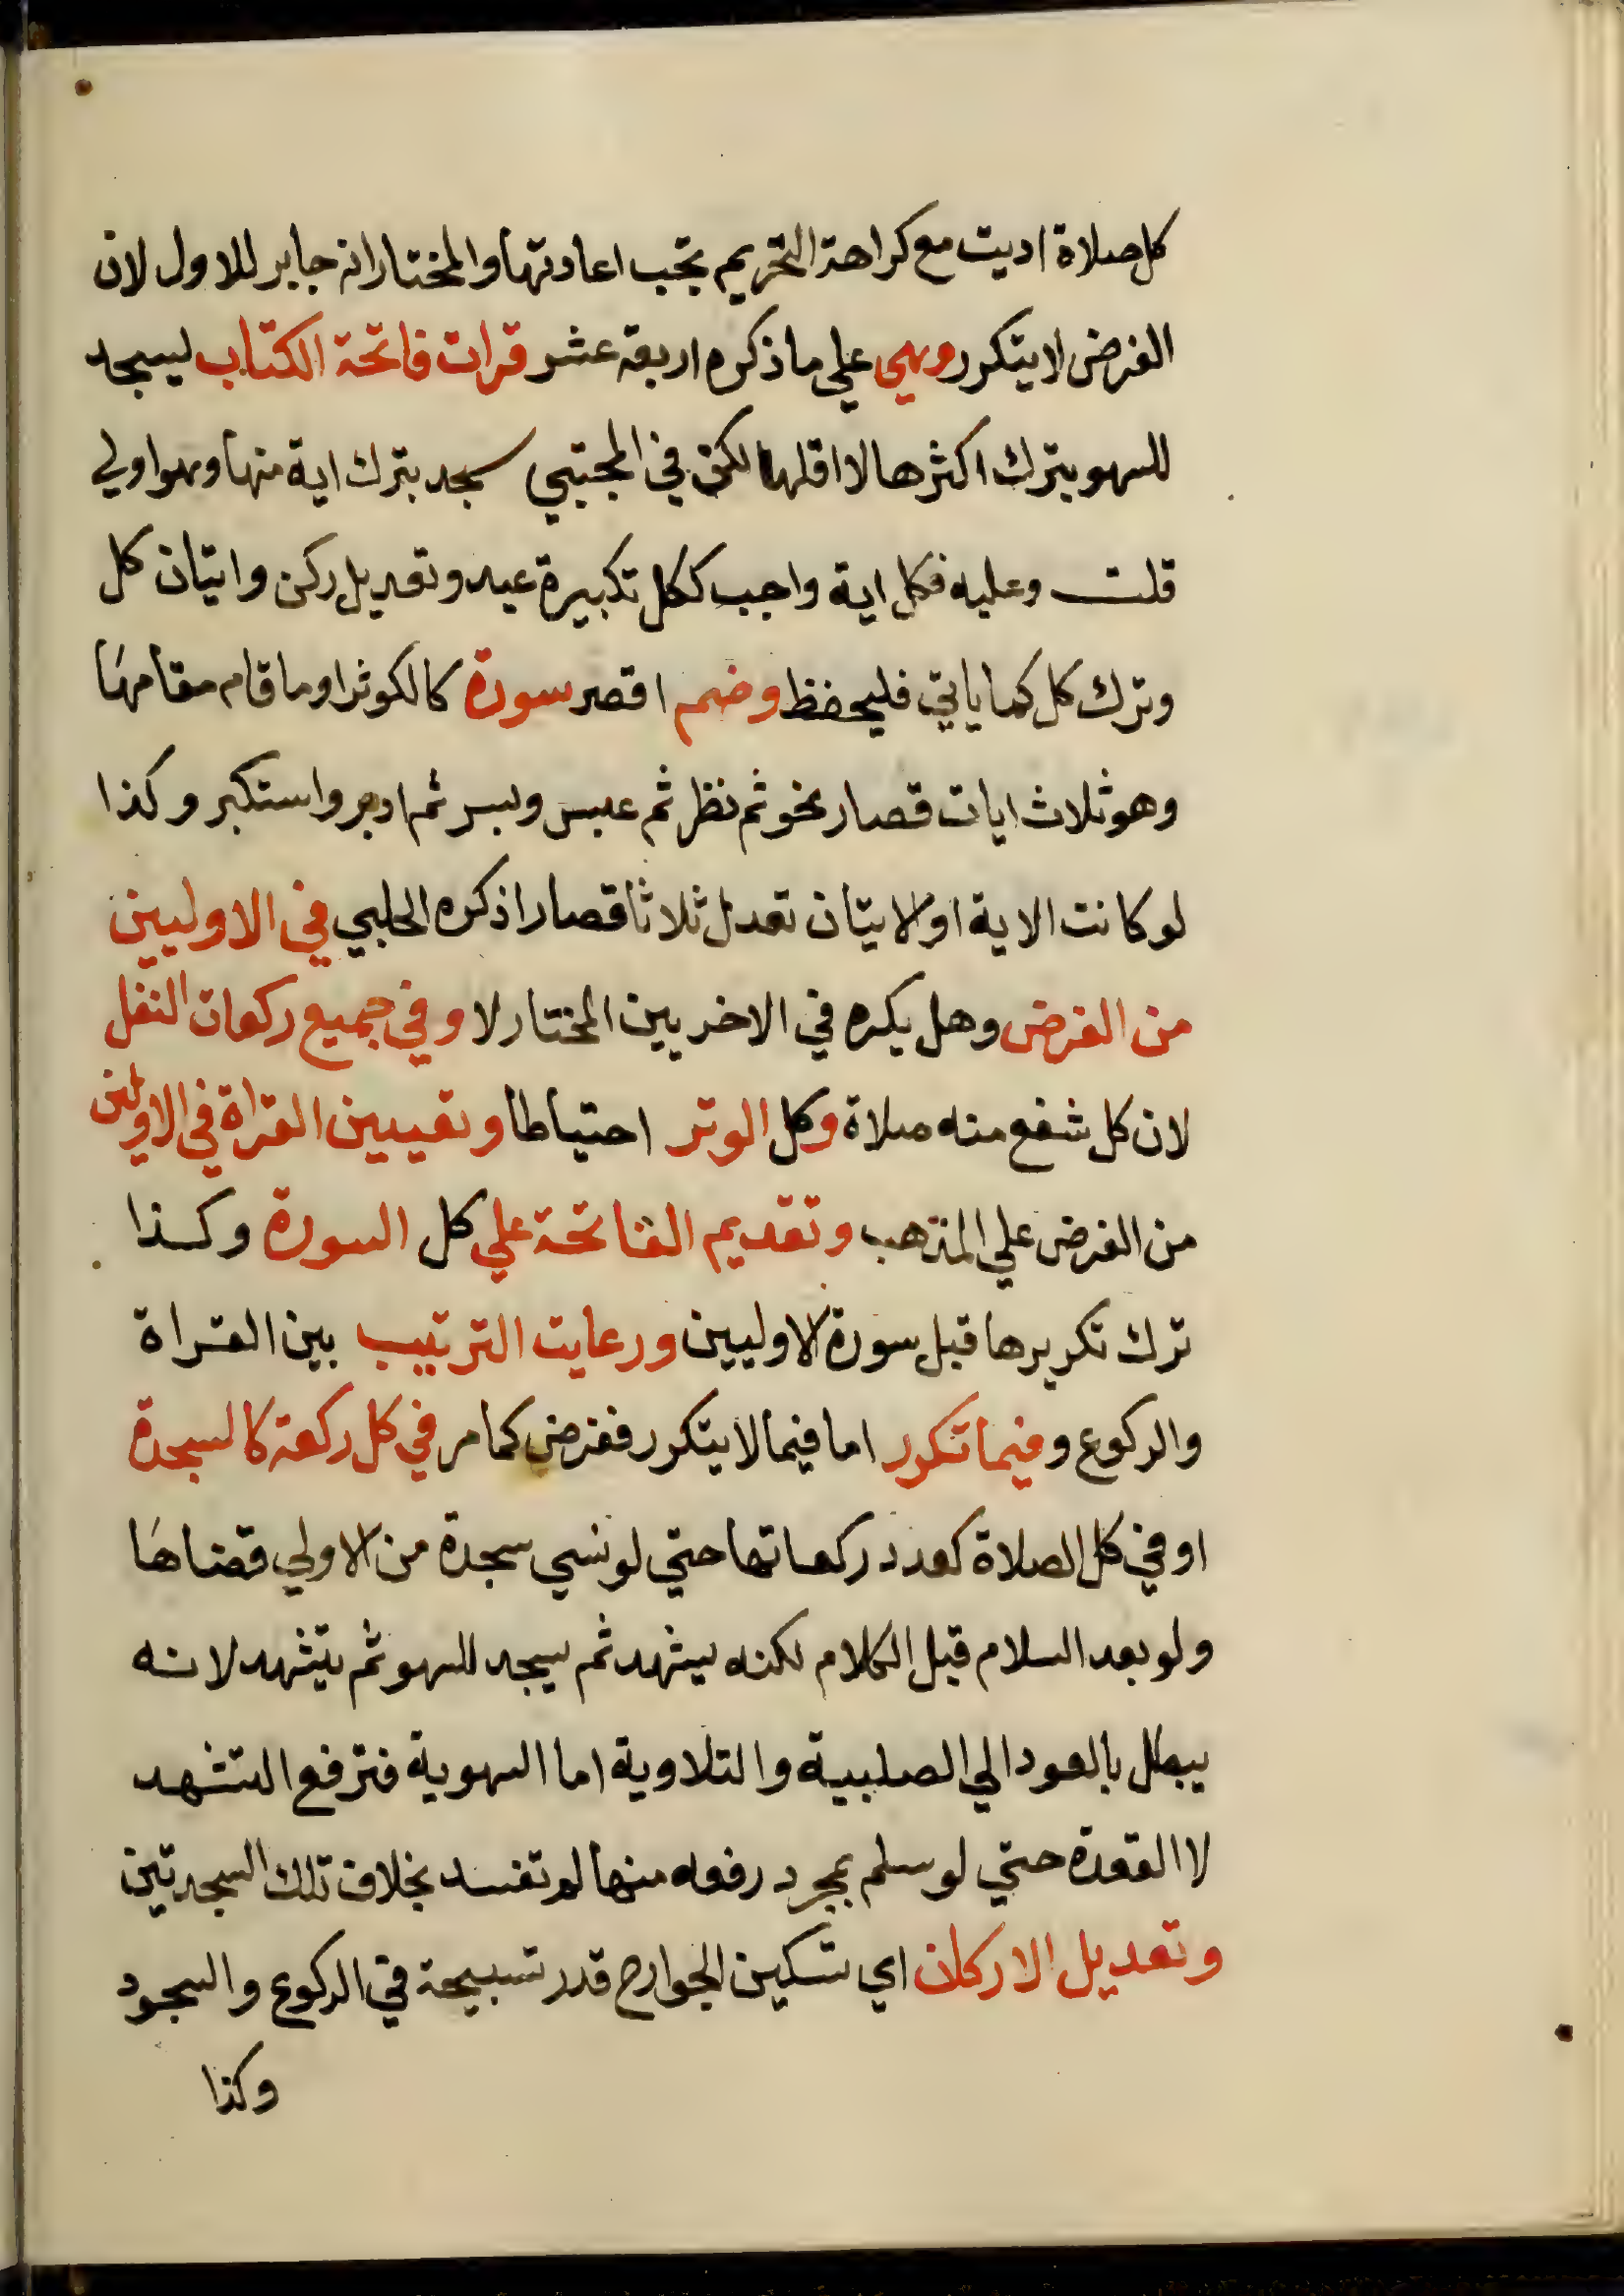 كل صلاة اديت مع كراهة التحريم تجب اعادتها والمختار انه جابر للاول لان
الفرض لا يتكرر وهي علي ما ذكره اربعة عشر قرات فاتحة الكتاب ليسجد
للسهو بترك اكثرها لا اقلها لكن في المجتبي سجد بترك اية منها وهو اولي
قلت وعليه فكل اية واجب ككل تكبيرة عيد وتعديل ركن واتيان كل
وترك كل كما ياتي فليحفظ وضم اقصر سورة كالكوثر او ما قام مقامها
وهو ثلاث ايات قصار نحو ثم نظر ثم عبس وبسر ثم ادبر واستكبر وكذا
لو كانت الاية او الايتان تعدل ثلاثا قصارا ذكره الحلبي في الاوليين
من الفرض وهل يكره في الاخريين المختار لا وفي جميع ركعات النفل
لان كل شفع منه صلاة وكل الوتر احتياطا وتعيين القراة في الاوليين
من الفرض علي المذهب وتقديم الفاتحة علي كل السورة وكذا
ترك تكريرها قبل سورة الاوليين ورعايت الترتيب بين القراة
والركوع وفيما تكرر اما فيما لا يتكرر ففرض كما مر في كل ركعة كالسجدة
او في كل الصلاة كعدد ركعاتها حتي لو نسي سجدة من الاولي قضاها
ولو بعد السلام قبل الكلام لكنه يتشهد ثم يسجد للسهو ثم يتشهد لانه
يبطل بالعود الي الصلبية والتلاوية اما السهوية فترفع التشهد
لا القعدة حتي لو سلم بمجرد رفعه منها لم تفسد بخلاف تلك السجدتين
وتعديل الاركان اي تسكين الجوارح قدر تسبيحة في الركوع والسجود
وكذا